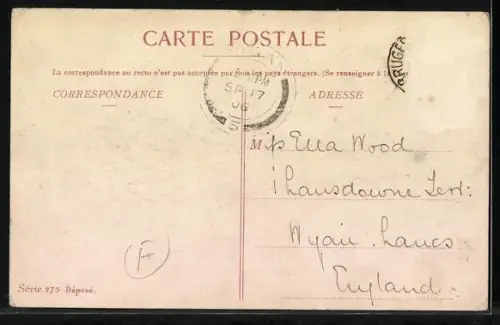 CARTE POSTALE
La correspondance au recto n'est pas acceptée par tous les pays étrangers. (Se renseigner à la
CORRESPONDANCE
ADRESSE
PM
SP 17
06
KRUGER
Miss Ella Wood
1 Lansdowne Terr:
Wigan. Lancs.
England.
F
Série 275 Déposé.